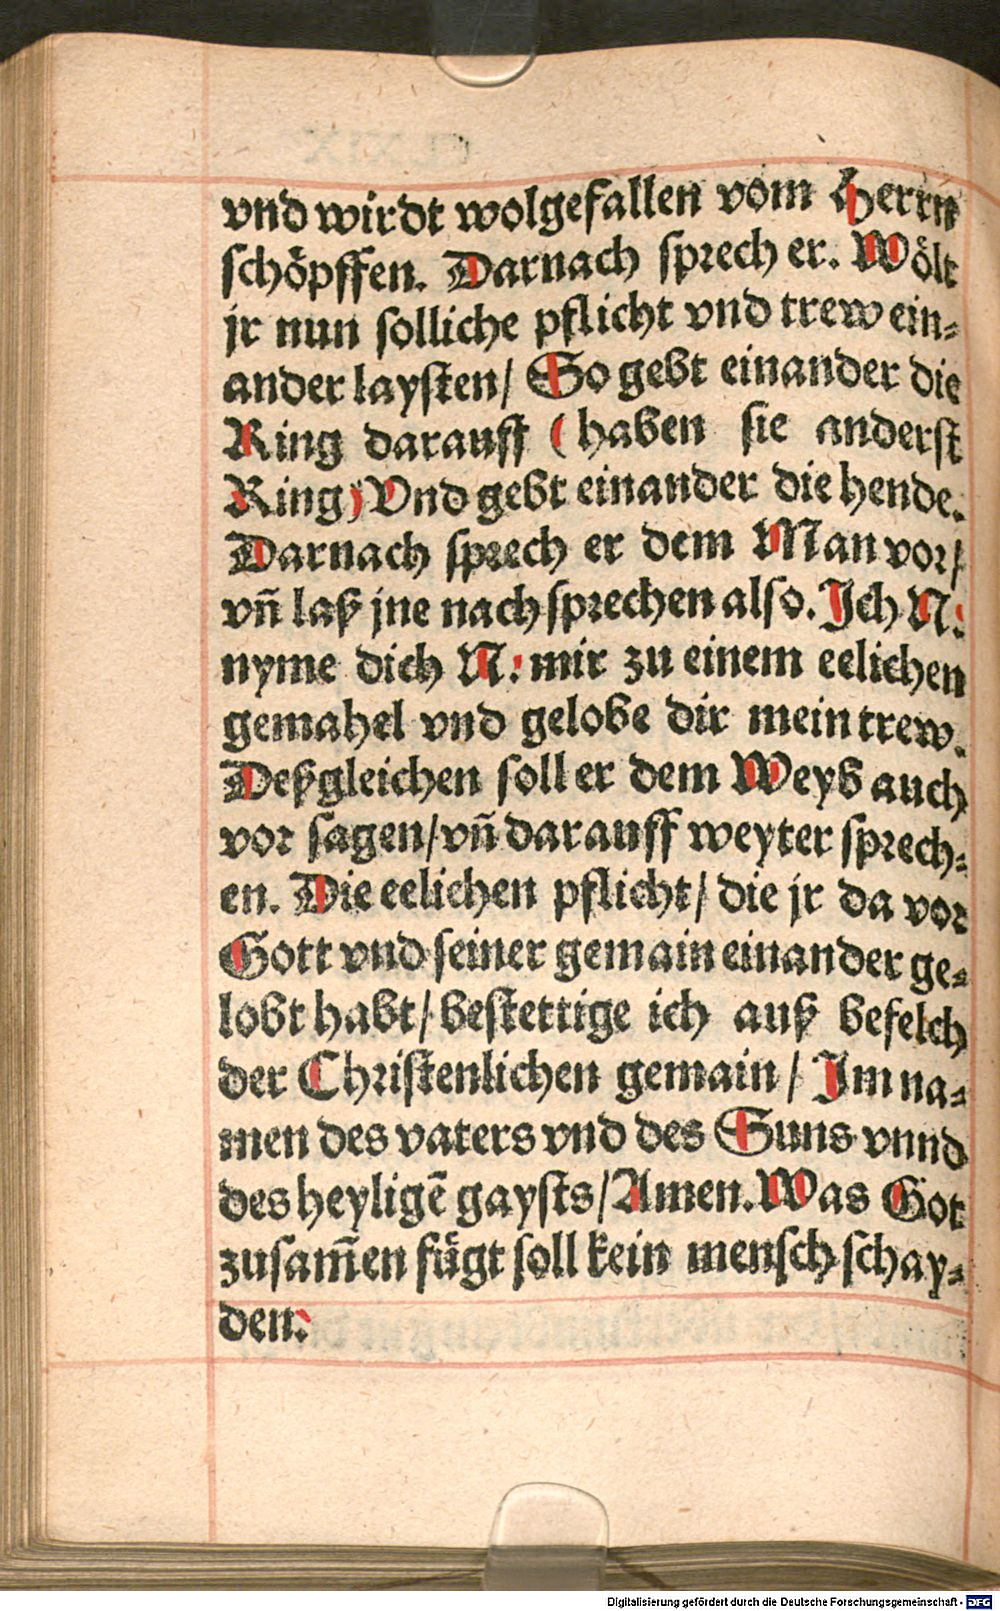 vnd wirdt wolgefallen vom Herrn
schöpffen. Darnach sprech er. Wölt
jr nun solliche pflicht vnd trew ein-
ander laysten/ So gebt einander die
Ring darauff (haben sie anderst
Ring) Vnd gebt einander die hende.
Darnach sprech er dem Man vor/
vñ laß jne nach sprechen also. Ich N.
nyme dich N. mir zu einem eelichen
gemahel vnd gelobe dir mein trew.
Deßgleichen soll er dem Weyb auch
vor sagen/ vñ darauff weyter sprech-
en. Die eelichen pflicht/ die jr da vor
Gott vnd seiner gemain einander ge-
lobt habt/ bestettige ich auß befelch
der Christenlichen gemain/ Im na-
men des vaters vnd des Suns vnnd
des heyligē gaysts/ Amen. Was Got
zusam̄en fügt soll kein mensch schay-
den.
Digitalisierung gefördert durch die Deutsche Forschungsgemeinschaft - DFG